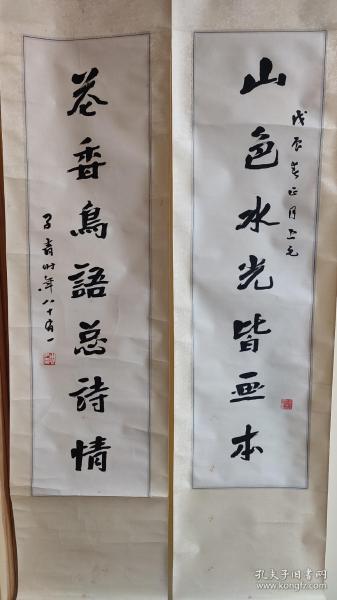 山色水光皆画本
戊辰春正月上元
花香鳥語总詩情
子青时年八十有一
孔夫子旧书网
www.kongfz.com